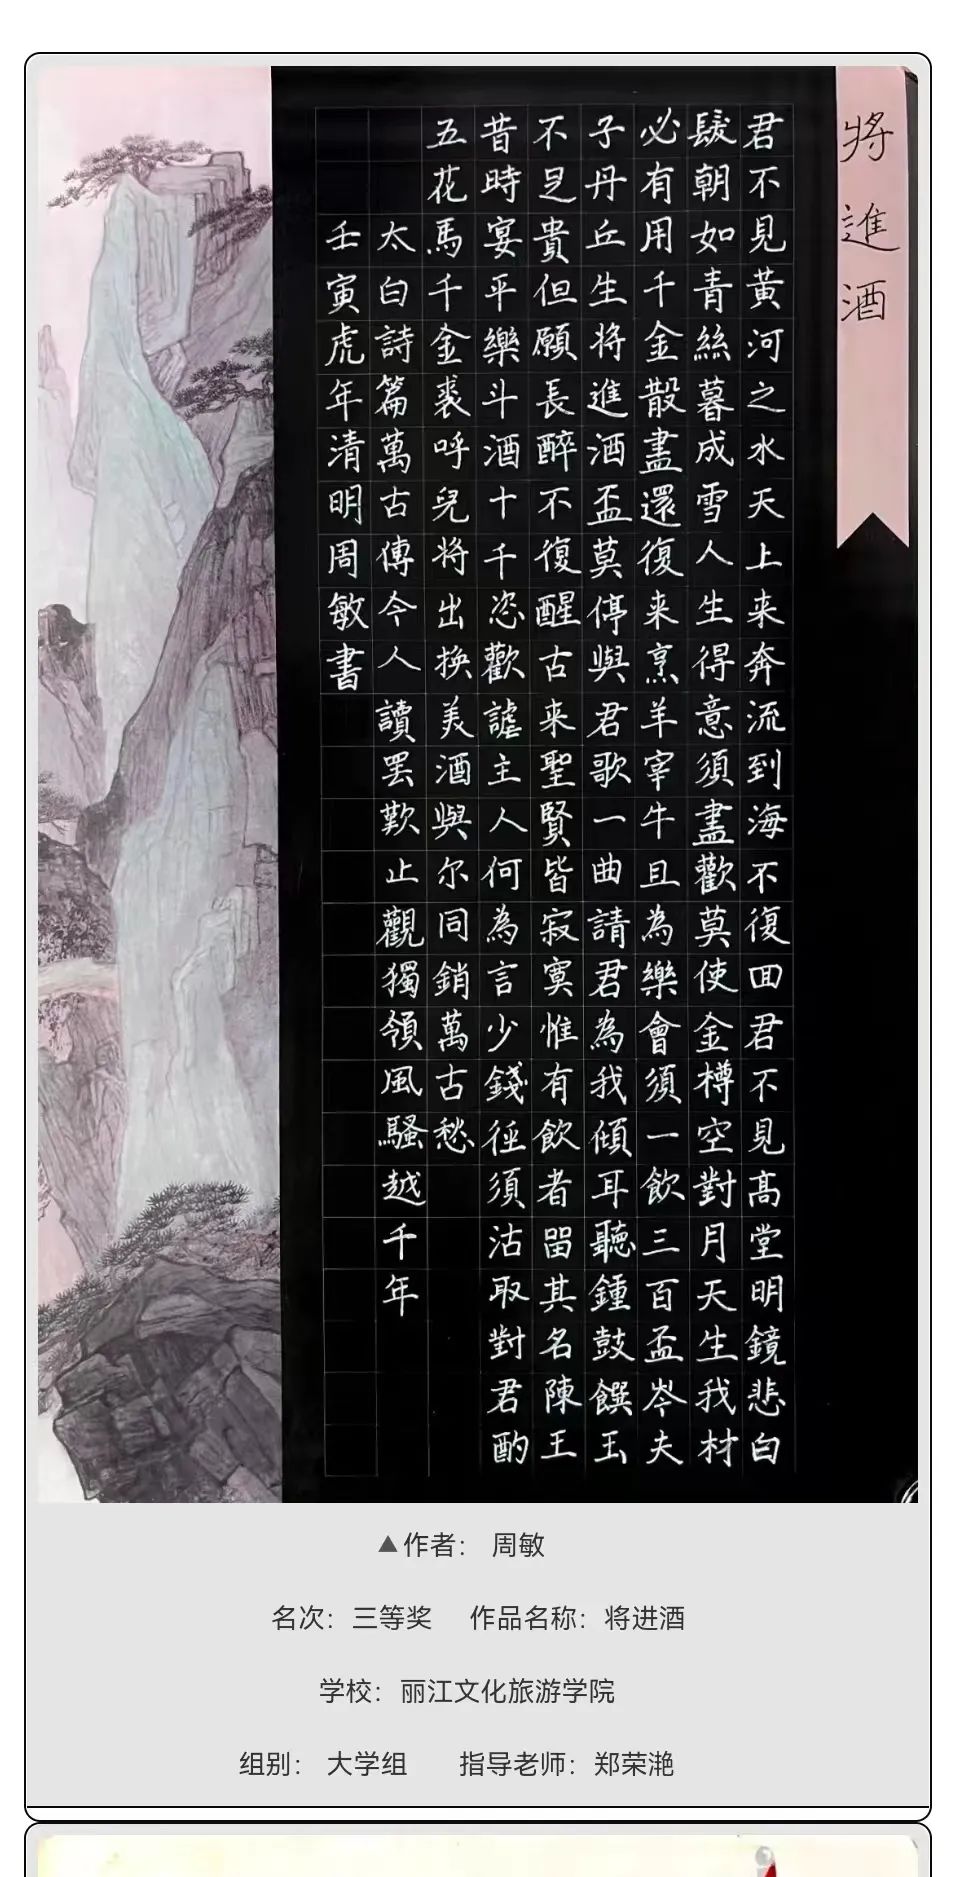 將進酒
君不見黃河之水天上来奔流到海不復回君不見高堂明鏡悲白
髮朝如青絲暮成雪人生得意須盡歡莫使金樽空對月天生我材
必有用千金散盡還復来烹羊宰牛且為樂會須一飲三百盃岑夫
子丹丘生将進酒盃莫停與君歌一曲請君為我傾耳聽鍾鼓饌玉
不足貴但願長醉不復醒古来聖賢皆寂寞惟有飲者留其名陳王
昔時宴平樂斗酒十千恣歡謔主人何為言少錢徑須沽取對君酌
五花馬千金裘呼兒将出換美酒與尔同銷萬古愁
太白詩篇萬古傳今人讀罢歎止觀獨領風騷越千年
壬寅虎年清明周敏書
▲作者： 周敏
名次：三等奖 作品名称：将进酒
学校：丽江文化旅游学院
组别： 大学组 指导老师：郑荣滟